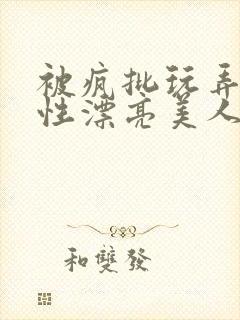 被疯批玩弄
性漂亮美人
和雙發